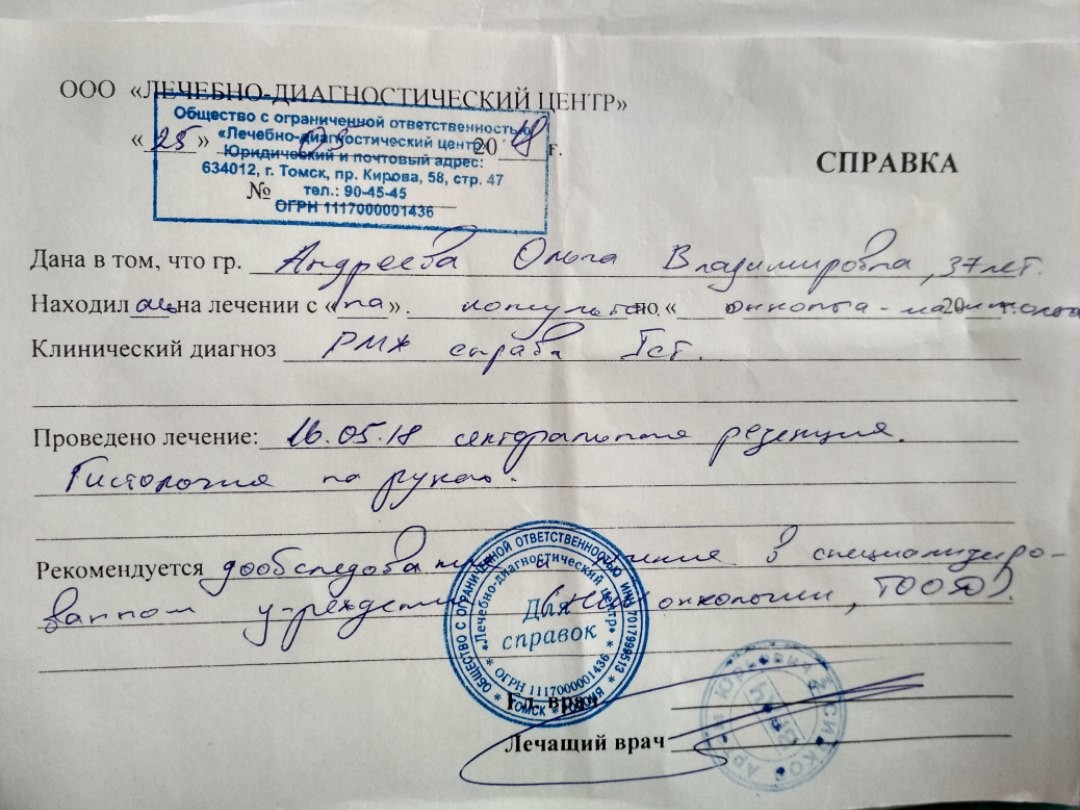 ООО «ЛЕЧЕБНО-ДИАГНОСТИЧЕСКИЙ ЦЕНТР»
Общество с ограниченной ответственностью
«Лечебно-диагностический центр»
Юридический и почтовый адрес:
634012, г. Томск, пр. Кирова, 58, стр. 47
тел.: 90-45-45
ОГРН 1117000001436
«25» 05 2018 г.
№
СПРАВКА
Дана в том, что гр. Андреева Ольга Владимировна, 37 лет.
Находил ась на лечении с «на». по « онколога - 20 г.
Клинический диагноз РМЖ справа Iст.
Проведено лечение: 16.05.18 секторальная резекция.
Гистология на руках.
Рекомендуется дообследование и в специализиро-
ванном учреждении (НИИ онкологии, ТООД).
ОБЩЕСТВО С ОГРАНИЧЕННОЙ ОТВЕТСТВЕННОСТЬЮ ИНН 7017999513 * ТОМСК * РОССИЯ *
«Лечебно-диагностический центр» * ОГРН 1117000001436 *
Для
справок
Гл. врач
Лечащий врач
ВРАЧ